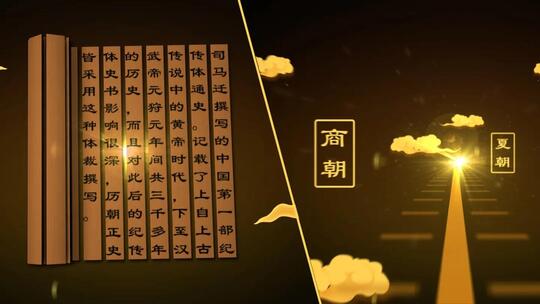 司马迁撰写的中国第一部纪
传体通史。记载了上自上古
传说中的黄帝时代，下至汉
武帝元狩元年间共三千多年
的历史，而且对此后的纪传
体史书影响很深，历朝正史
皆采用这种体裁撰写。
商朝
夏朝